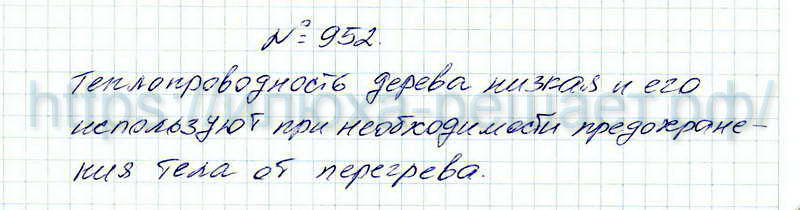 № 952.
Теплопроводность дерева низкая и его
используют при необходимости предохране-
ния тела от перегрева.